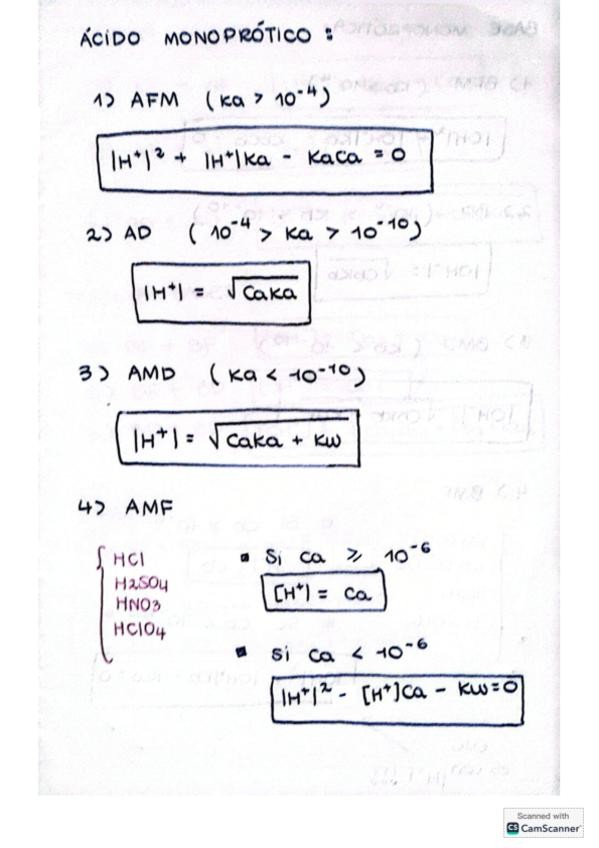 ÁCIDO MONOPRÓTICO :
1) AFM (Ka > 10⁻⁴)
|H⁺|² + |H⁺|Ka - KaCa = 0
2) AD (10⁻⁴ > Ka > 10⁻¹⁰)
|H⁺| = √CaKa
3) AMD (Ka < 10⁻¹⁰)
|H⁺| = √CaKa + Kw
4) AMF
HCl
H2SO4
HNO3
HClO4
▪ Si Ca ≥ 10⁻⁶
[H⁺] = Ca
▪ Si Ca < 10⁻⁶
|H⁺|² - [H⁺]Ca - Kw = 0
Scanned with
CS CamScanner